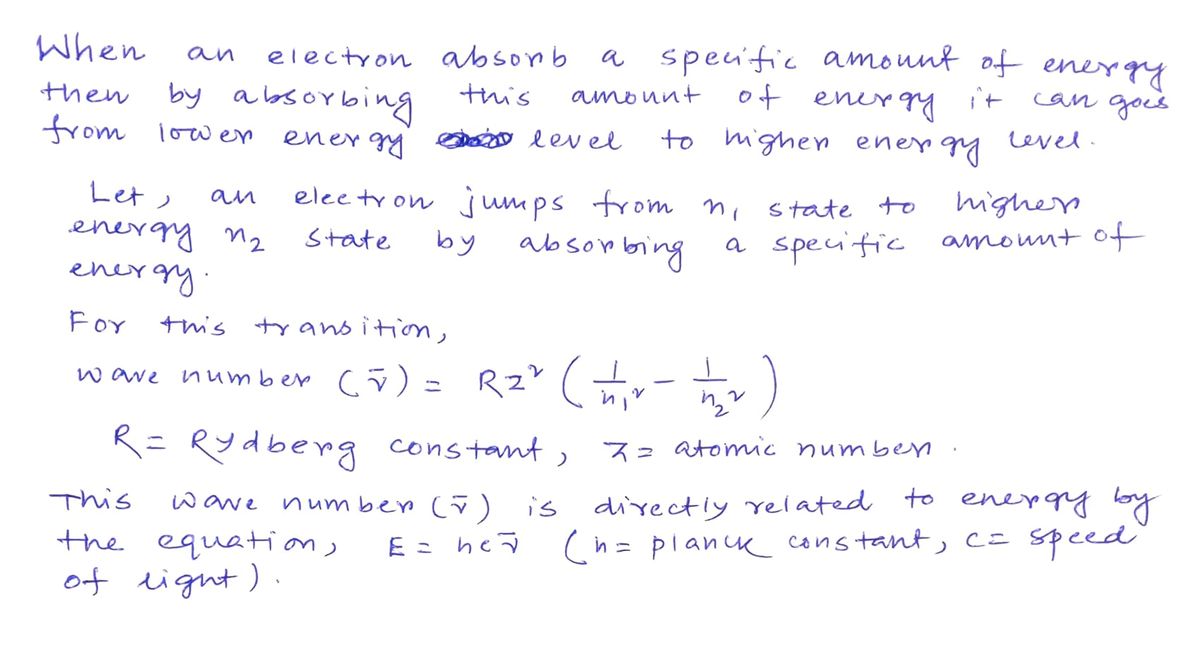 When an electron absorb a specific amount of energy
then by absorbing this amount of energy it can goes
from lower energy level to higher energy level.
Let, an electron jumps from n₁ state to higher
energy n₂ state by absorbing a specific amount of
energy.
For this transition,
wave number (ν̄) = RZ² (1/n₁² - 1/n₂²)
R = Rydberg constant, Z = atomic number.
This wave number (ν̄) is directly related to energy by
the equation, E = hcν̄ (h = planck constant, c = speed
of light).